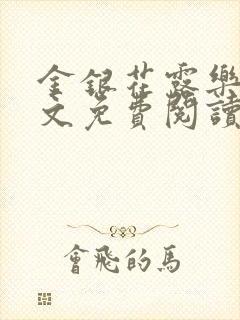 金銀花露樂
文免費閱讀
會飛的馬